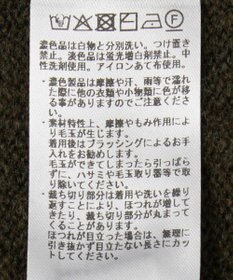 濃色品は白物と分別洗い。つけ置き
禁止。淡色は蛍光増白剤禁止。中
性洗剤使用。アイロンあて布使用。
・濃色製品は摩擦や汗、雨等で濡れ
た際に他の衣類や小物類に色が移
る事がありますのでご注意くださ
い。
・素材特性上、摩擦やもみ作用により
毛玉が生じます。
着用後はブラッシングによるお手
入れをお勧めします。
毛玉ができてしまったら引っぱら
ずに、ハサミや毛玉取り器等で取り
除いてください。
・裁ち切り部分は着用や洗いを繰り
返すことにより、ほつれが出たり、
裁ち切り部分が丸まってくる
ことがあります。
ほつれが目立った場合は、無理に
引き抜かず目立たない長さにカッ
トしてください。